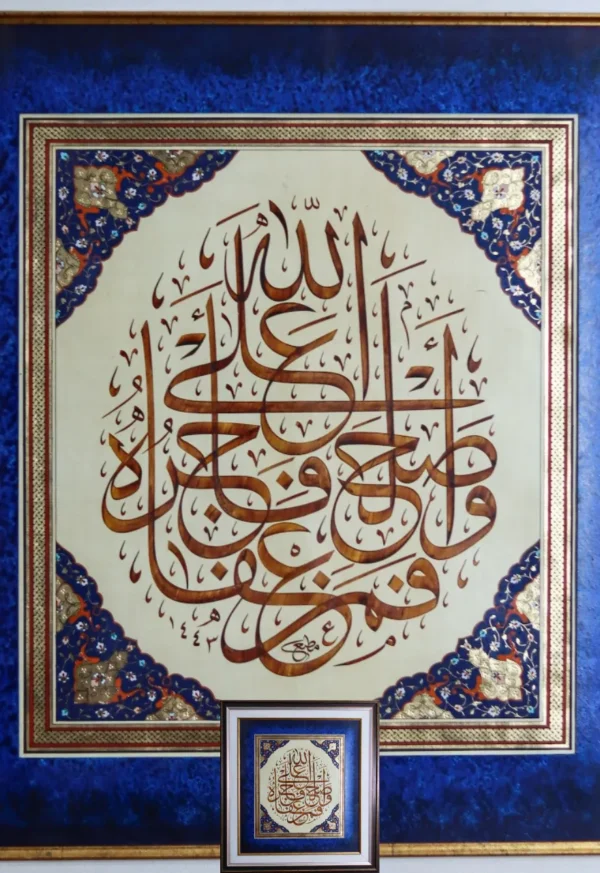 فمن عفا
وأصلح فأجره
على الله
١٤٤٣ هـ